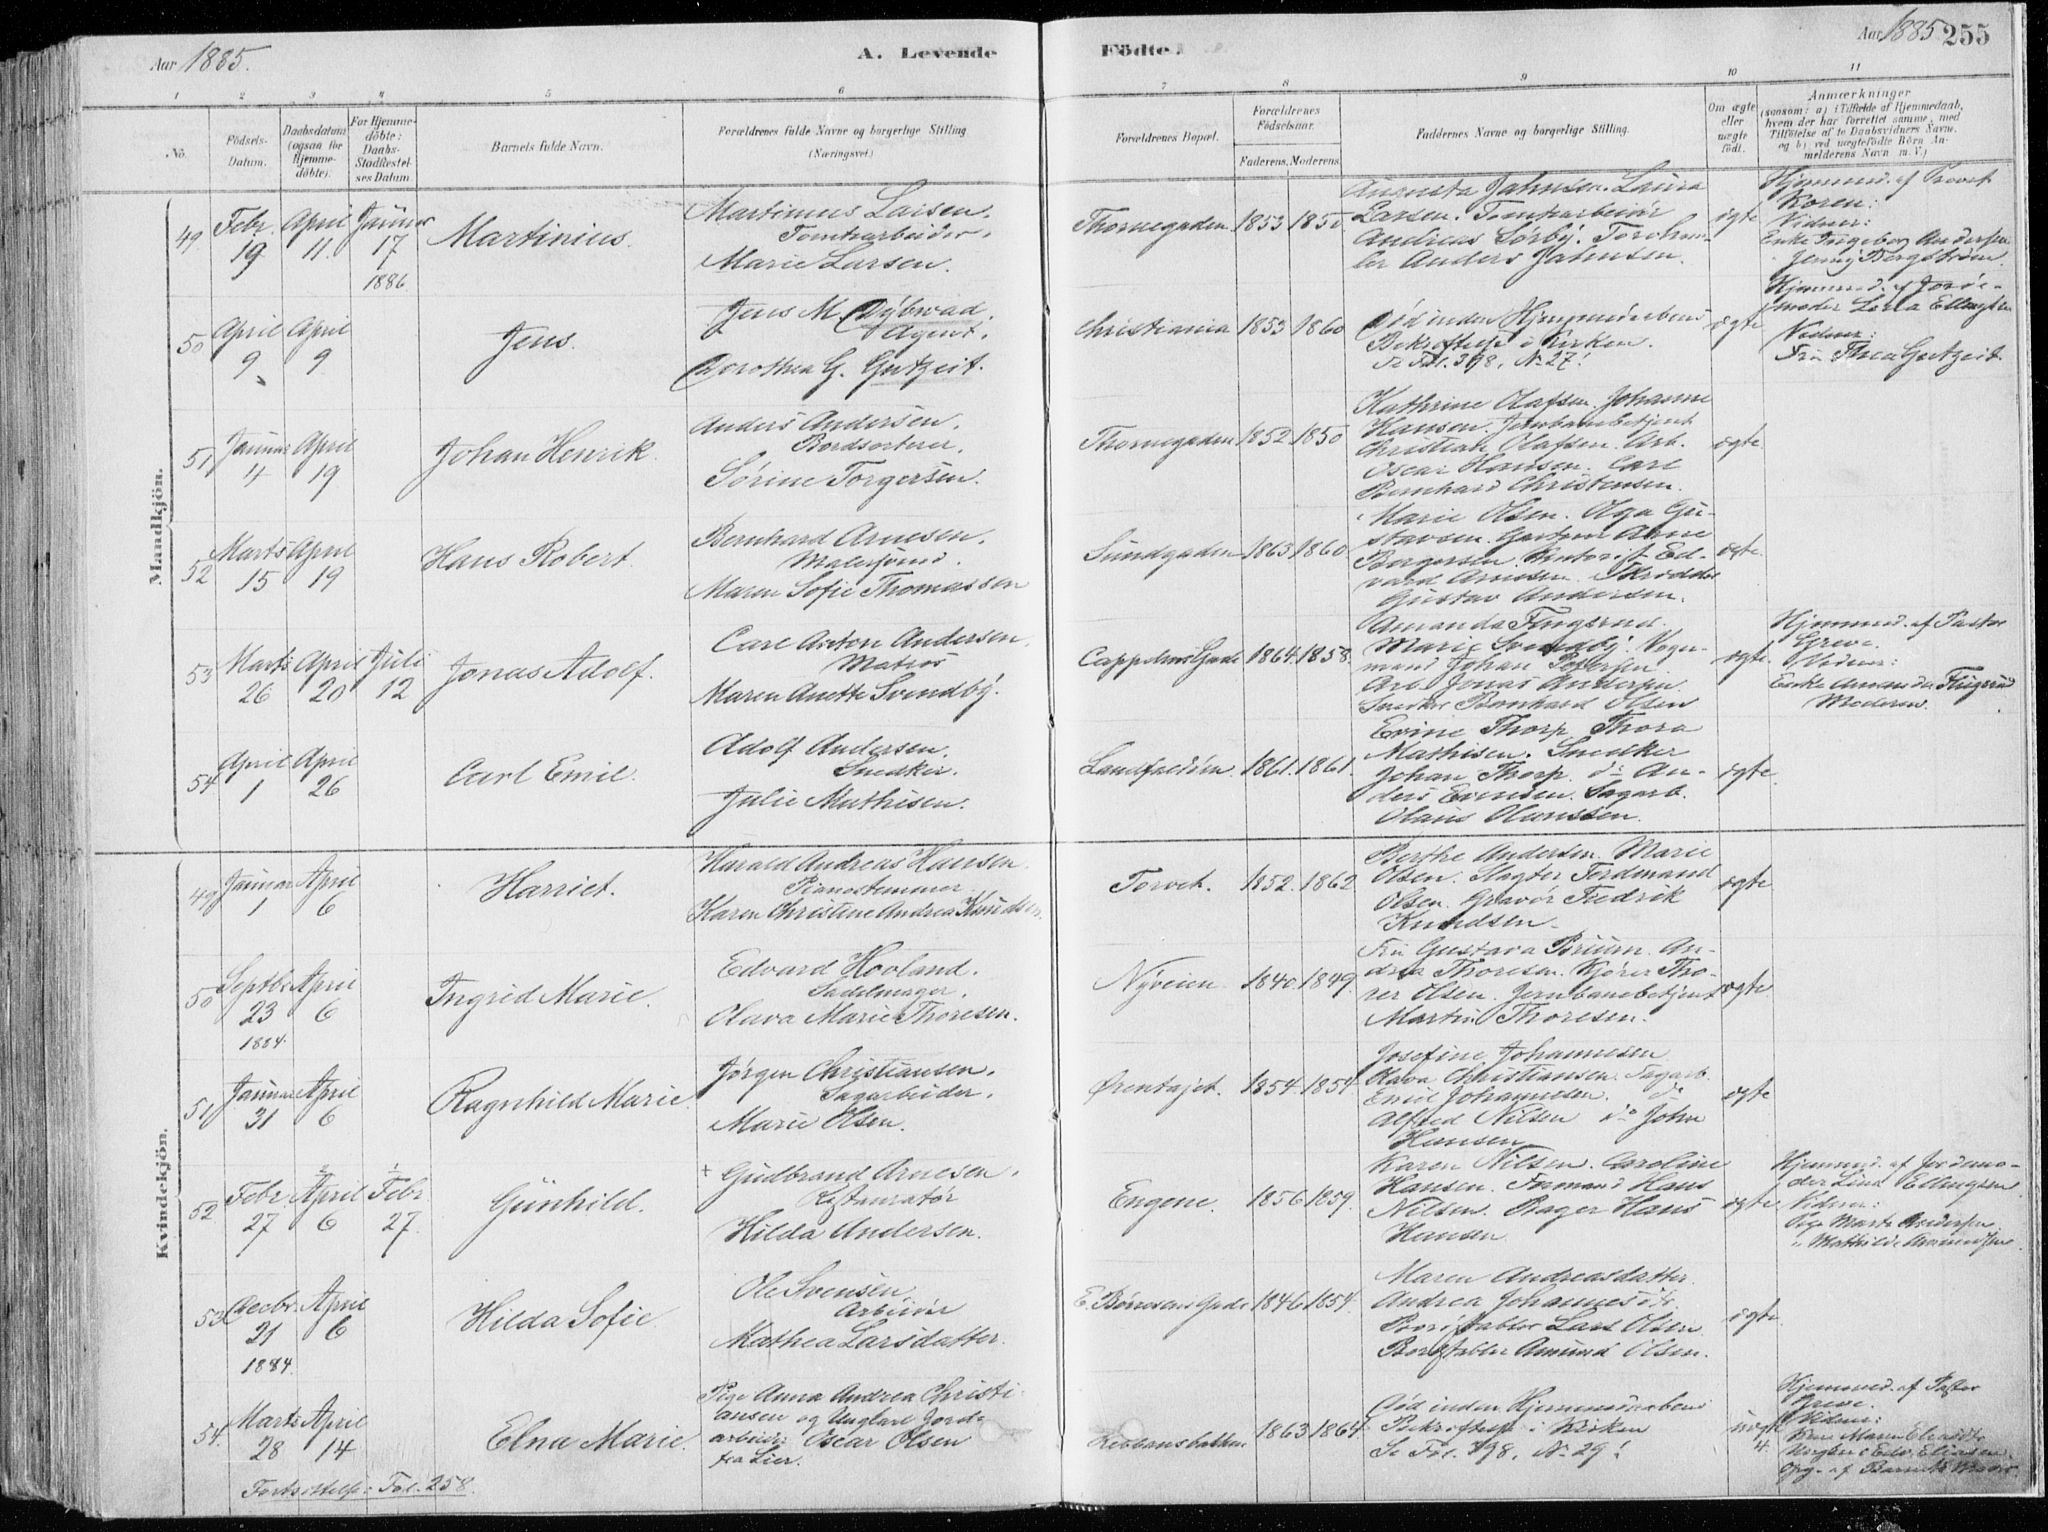 Aar 1885.
A. Levende Födte.
Aar 1885 255
1 2 3 4 5 6 7 8 9 10 11
No.
Födsels-Datum.
Daabsdatum (ogsaa for Hjemmedöbte).
For Hjemmedöbte: Daabs-Stadfæstelses Datum.
Barnets fulde Navn.
Forældrenes fulde Navne og borgerlige Stilling (Næringsvei.)
Forældrenes Bopæl.
Forældrenes Födselsaar.
Faderens. Moderens.
Faddernes Navne og borgerlige Stilling.
Om ægte eller uægte födt.
Anmærkninger (saasom: a) i Tilfælde af Hjemmedaab, hvem der har forrettet samme, med Tilföielse af to Daabsvidners Navne, og b) ved uægtefödte Börn Anmelderens Navn m. V.)
Mandkjön.
49 Febr. 19 April 11. Januar 17 1886
Martinius.
Martinius Larsen.
Tomtearbeider.
Marie Larsen.
Thornegaden 1853 1850
Augusta Jahnsen. Laura
Larsen. Tomtearbeider
Andreas Sørby.
Anders Jahnsen.
ægte
Hjemmed. af Provst
Koren:
Vidner:
Enke Ingeborg Andersen
Jenny Bergstrøm.
50 April 9 April 9
Jens.
Jens M. Dybwad.
Agent.
Dorothea G. Gutzeit.
Christiania 1853 1860
Død inden Hjemmedaabens
Bekræftelse i Kirken.
Se Fol. 398, No 27!
ægte
Hjemmed. af Jorde-
moder Lina Ellingsen
Vidner:
Fru Thea Gutzeit.
51 Januar 4 April 19
Johan Henrik.
Anders Andersen.
Bordsorterer.
Sørine Torgersen.
Thornegaden 1852. 1850
Kathrine Olafsen. Johanne
Hansen. Jernbanebetjent
Christian Olafsen. Arb.
Oscar Hansen. Carl
Bernhard Christensen.
ægte
52 Marts 15 April 19
Hans Robert.
Bernhard Arnesen.
Malersvend.
Maren Sofie Thomassen
Sundgaden 1863 1860
Marie Olsen. Olga Gu-
stavsen. Gartner Arne
Borgersen. Kontorist Ed-
vard Arnesen. Skrædder
Gustav Andersen.
ægte
53 Marts 26 April 20 Juli 12
Jonas Adolf.
Carl Anton Andersen.
Matros
Maren Anette Svendby.
Cappelens Gade 1864. 1858.
Amanda Flugsrud.
Marie Svendby. Vogn-
mand Johan Pettersen
Arb. Jonas Andersen
Snedker Bernhard Olsen
ægte.
Hjemmed. af Pastor
Greve
Vidner:
Enke Amanda Flugsrud
Moderen.
54 April 1 April 26
Carl Emil.
Adolf Andersen.
Snedker.
Julie Mathisen.
Landfaldøen. 1861. 1861.
Evine Thorp. Thora
Mathisen. Snedker
Johan Thorp. do An-
ders Evensen. Sagarb.
Olaus Hanssen.
ægte.
Kvindekjön.
49 Januar 1 April 6
Harriet.
Harald Andreas Hansen.
Pianostemmer.
Karen Christine Andrea Knudsen.
Torvet. 1852. 1862
Berthe Andersen. Marie
Olsen. Slagter Ferdinand
Olsen. Gravør Fredrik
Knudsen.
ægte
50 Septbr 23 1884. April 6
Ingrid Marie.
Edvard Hovland.
Sadelmager.
Olava Marie Thoresen.
Nyveien 1840. 1849.
Fru Gustava Bruun. An-
drea Thoresen. Kjører Tho-
rer Olsen. Jernbanebetjent
Martin Thoresen.
ægte.
51 Januar 31 April 6
Ragnhild Marie.
Jørgen Christiansen.
Sagarbeider.
Marie Olsen.
Ørentajet. 1854. 1854
Josefine Johannesen
Olava Christiansen. Sagarb.
Emil Johannesen. do
Alfred Nilsen do John
Hansen
ægte
52 Febr 27 April 6 Febr 27.
Gunhild.
+ Gudbrand Arnesen.
Restauratør
Hilda Andersen.
Engene. 1856 1859.
Karen Nilsen. Caroline
Hansen. Formand Hans
Nilsen. Bager Hans
Hansen
ægte
Hjemmed. af Jordemo-
der Lina Ellingsen
Vidner:
Pige Marte Andersen.
" Mathilde
53 Decbr. 21 1884. April 6
Hilda Sofie.
Ole Svensen.
Arbeider
Mathea Larsdatter.
E. Børresens Gade 1846 1854.
Maren Andreasdatter.
Andrea Johannesdt.
Bordstabler Lars Olsen
Bordstabler Amund Olsen.
ægte.
54. Marts 28 April 14
Elna Marie.
Pige Anna Andrea Christi-
ansen og Ungkarl Jord-
arbeider Oscar Olsen
fra Lier.
1863 1864.
Død inden Hjemmedaabens
Bekræftelse i Kirken
Se Fol. 398, No 29!
uægte
4.
Hjemmed. af Pastor
Greve.
Vidner:
Kone Maren
Edv. Eliasen.
Opg. af Barnets Moder.
Fortsættelse: Fol. 258.